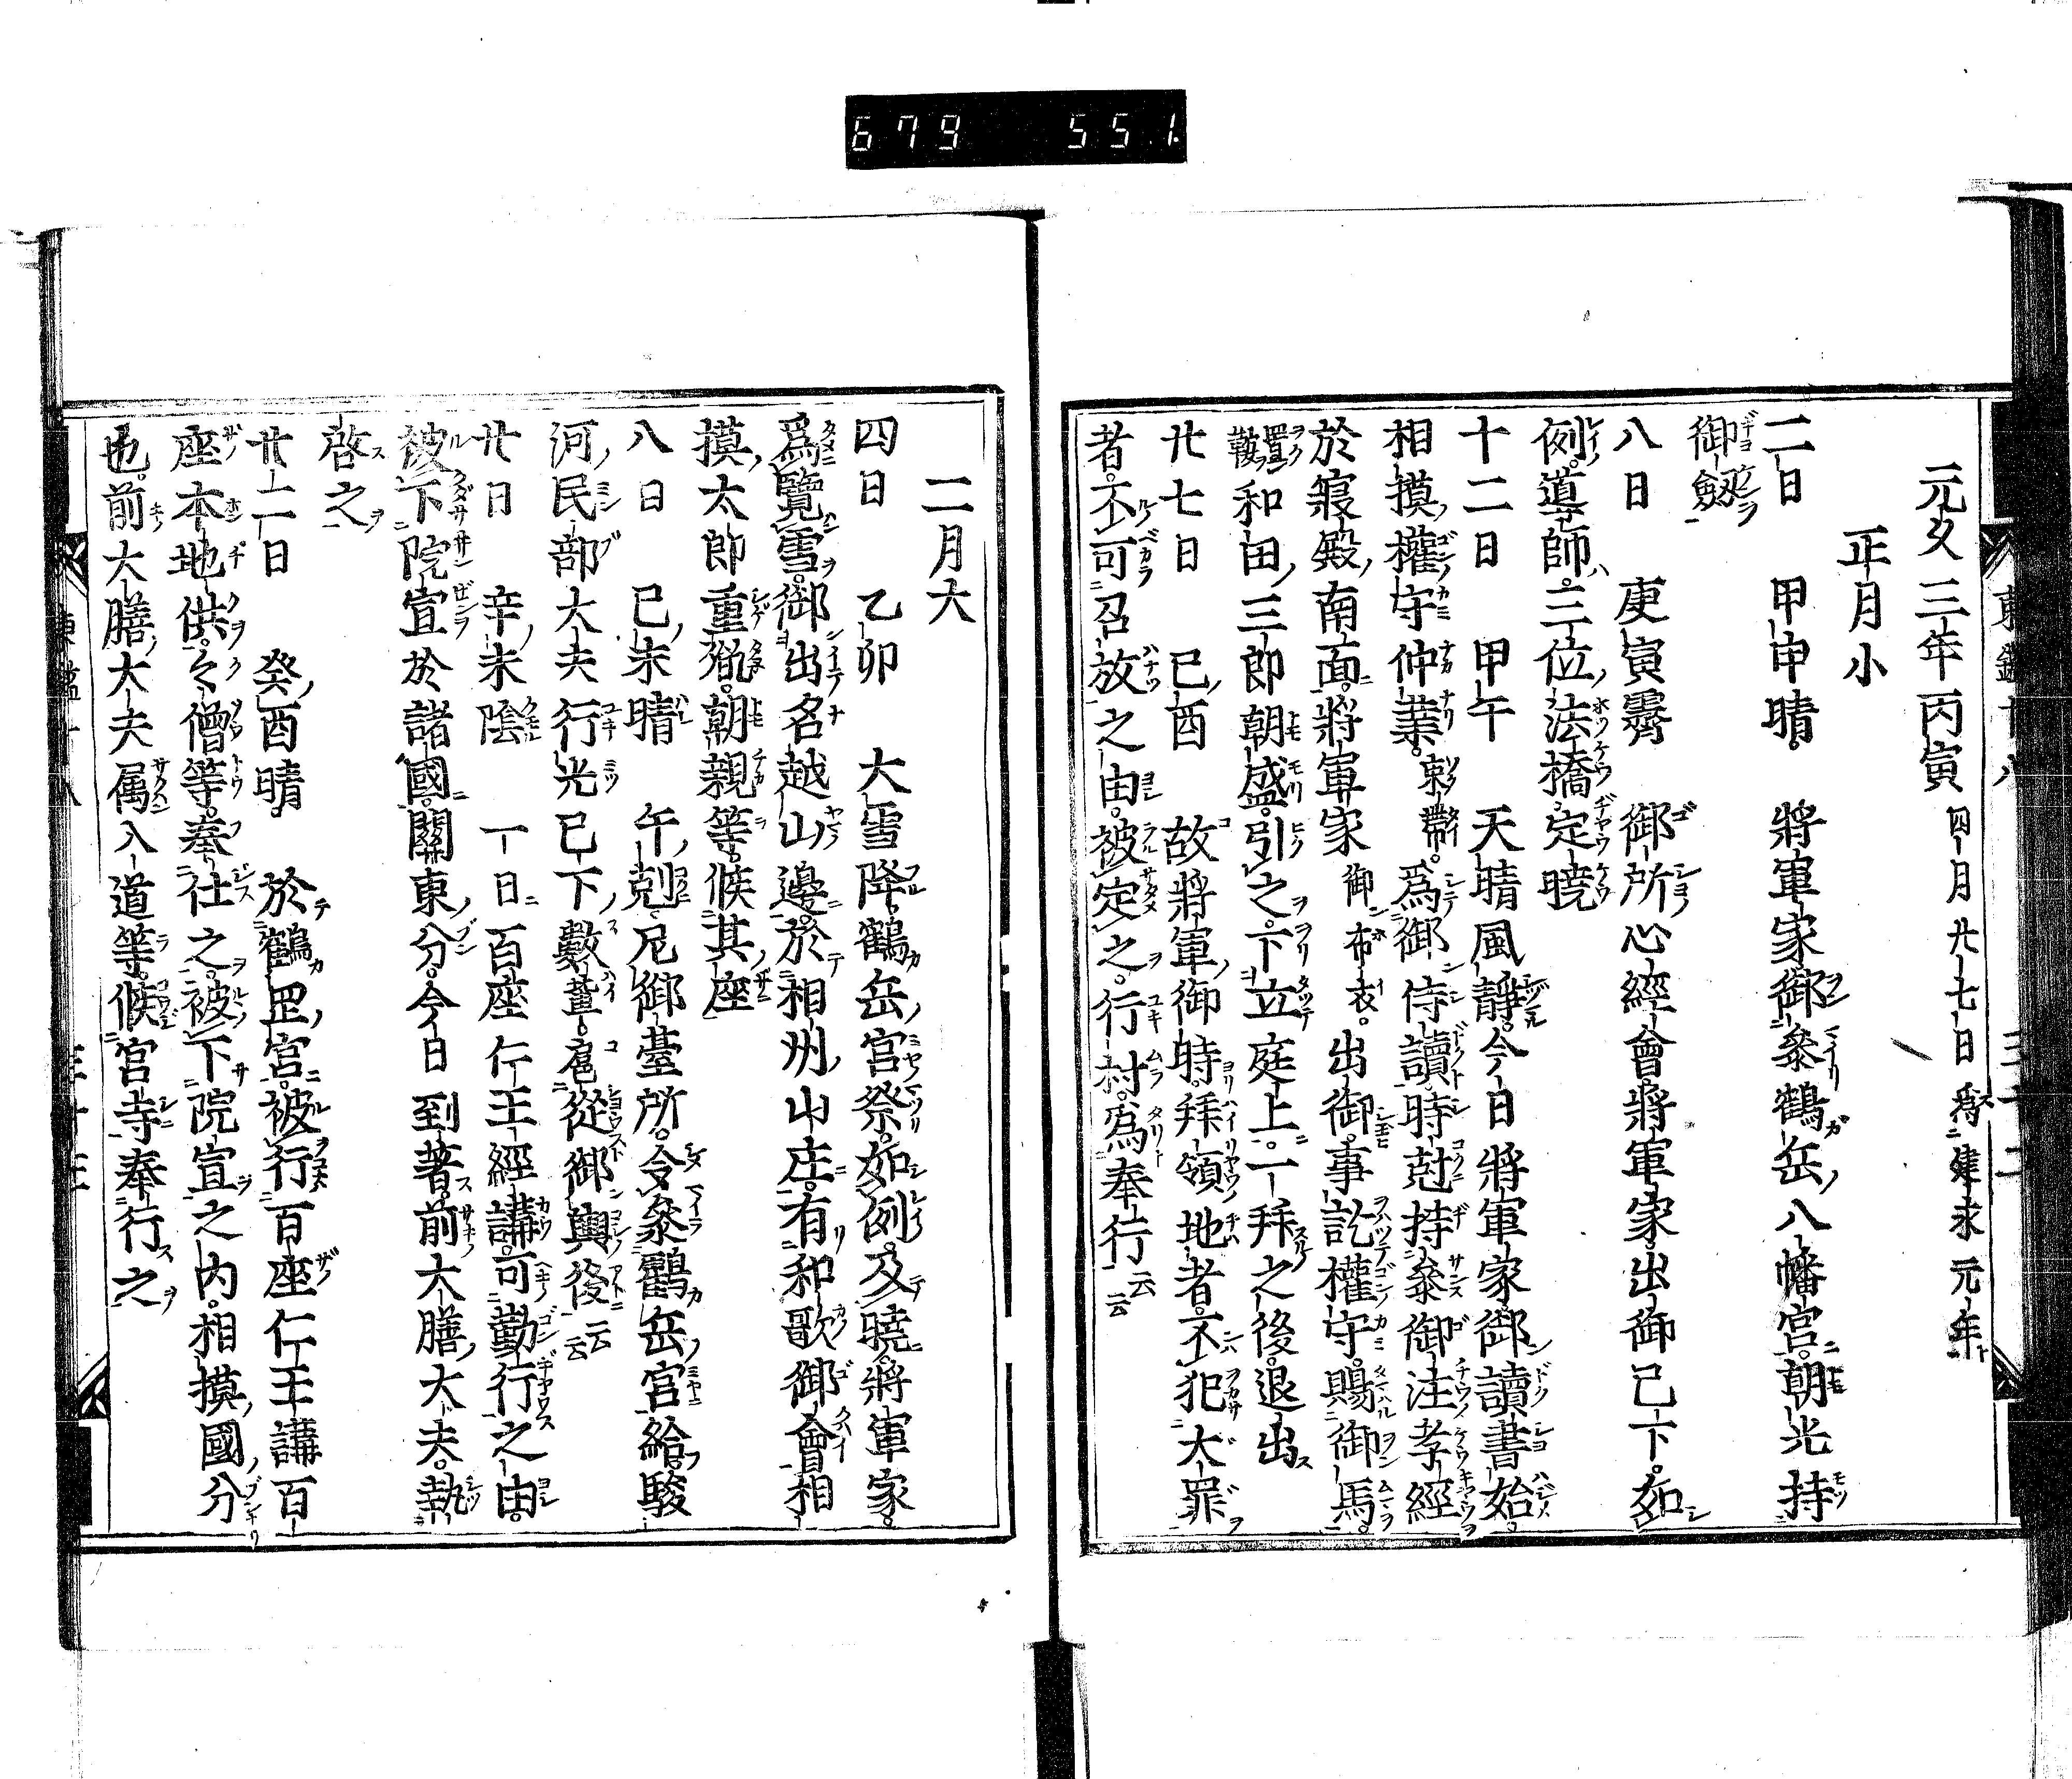 679 551.
元久三年丙寅 四月廿七日為建永元年
正月小
二日 甲申晴。將軍家御參鶴岳八幡宮。朝光持
御劔
八日 庚寅霽 御所心經會將軍家出御已下。如
例。導師三位法橋定曉
十二日 甲午 天晴風靜。今日將軍家御讀書始。
相摸權守仲業。束帶。為御侍讀。時尅持參御注孝經
於寢殿南面。將軍家御布衣。出御。事訖權守。賜御馬。
置鞍和田三郎朝盛。引之。下立庭上。一拜之後。退出
廿七日 己酉 故將軍御時。拜領地者。不犯大罪
者。不可召放之由。被定之。行村。為奉行云云
二月大
四日 乙卯 大雪降。鶴岳宮祭。如例。及曉。將軍家。
為覽雪。御出名越山邊。於相州山庄。有和歌御會相
摸太郎重胤。朝親等。候其座
八日 己未晴 午剋尼御臺所。令參鶴岳宮給。駿
河民部大夫行光已下數輩。扈從御輿後云云
廿日 辛未陰 一日百座仁王經講。可勤行之由。
被下院宣於諸國。關東分。今日到著。前大膳大夫。執
啓之
廿二日 癸酉晴 於鶴罡宮。被行百座仁王講百
座本地供。々僧等。奉仕之。被下院宣之内。相摸國分
也。前大膳大夫属入道等。候宮寺奉行之